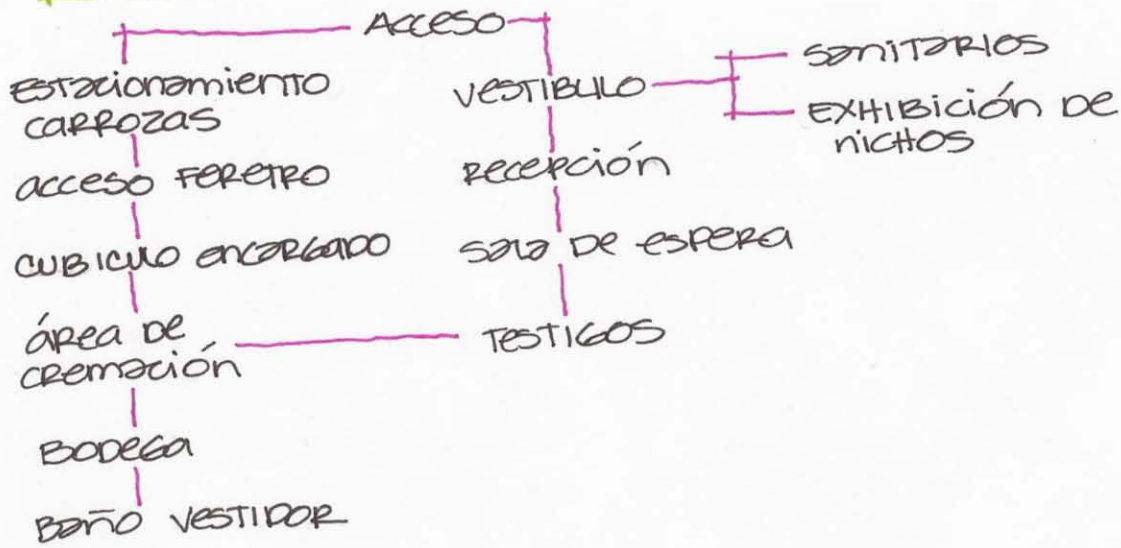 ACCESO
ESTACIONAMIENTO
CARROZAS
ACCESO FERETRO
CUBICULO ENCARGADO
ÁREA DE
CREMACIÓN
BODEGA
BAÑO VESTIDOR
VESTIBULO
RECEPCIÓN
SALA DE ESPERA
TESTIGOS
SANITARIOS
EXHIBICIÓN DE
NICHOS